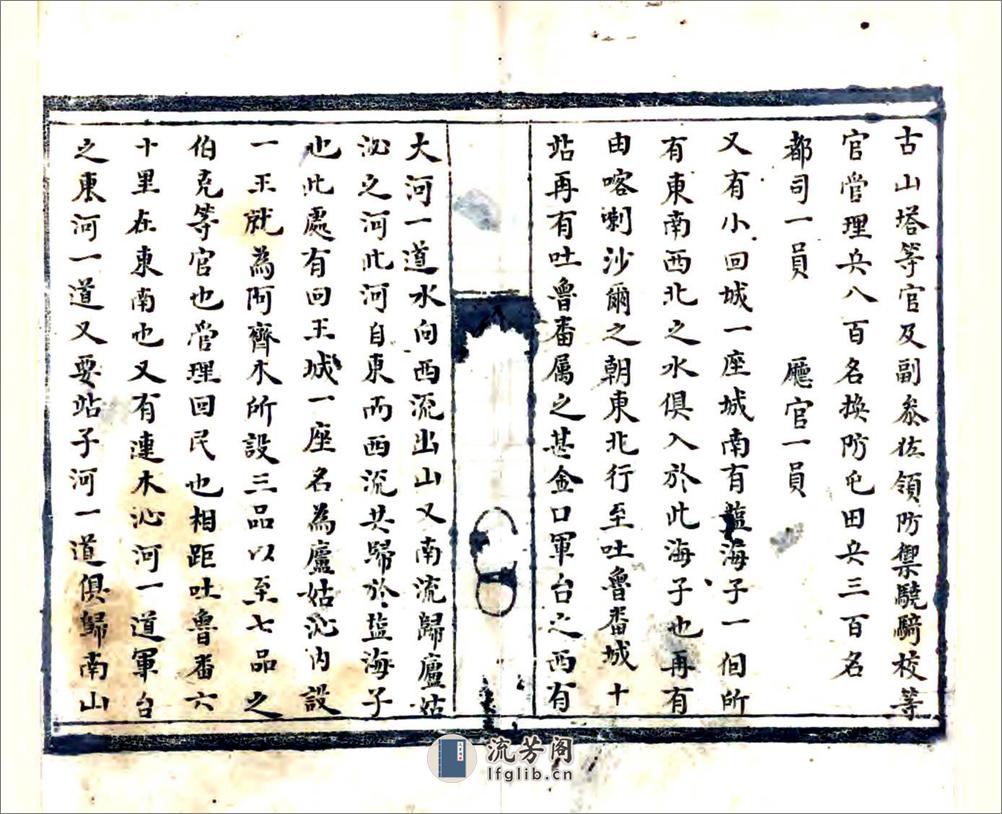 古山塔等官及副叅佐領防禦驍騎校等
官管理兵八百名換防屯田兵三百名
都司一員　廳官一員
又有小回城一座城南有鹽海子一個所
有東南西北之水俱入於此海子也再有
由喀喇沙爾之朝東北行至吐魯番城十
站再有吐魯番属之甚金口軍台之西有
大河一道水向西流出山又南流歸廬姑
沁之河此河自東而西流共歸於盐海子
也此處有回王城一座名為廬姑沁內設
一王就為阿齊木所設三品以至七品之
伯克等官也管理回民也相距吐魯番六
十里在東南也又有連木沁河一道軍台
之東河一道又要站子河一道俱歸南山
流芳阁
lfglib.cn